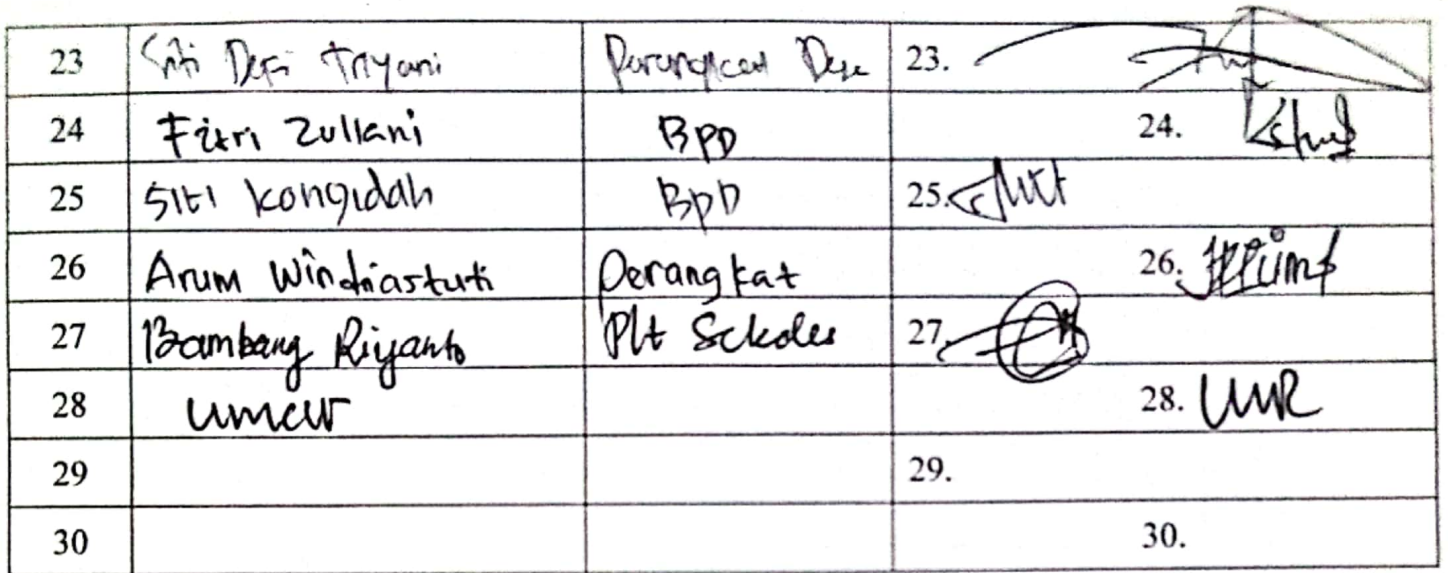 23 Siti Desi Triyani Perangkat Desa 23.
24 Fitri Zullani BPD 24.
25 Siti Kongidah BPD 25.
26 Arum Windriastuti Perangkat 26.
27 Bambang Riyanto Plt Sekdes 27.
28 28.
29 29.
30 30.